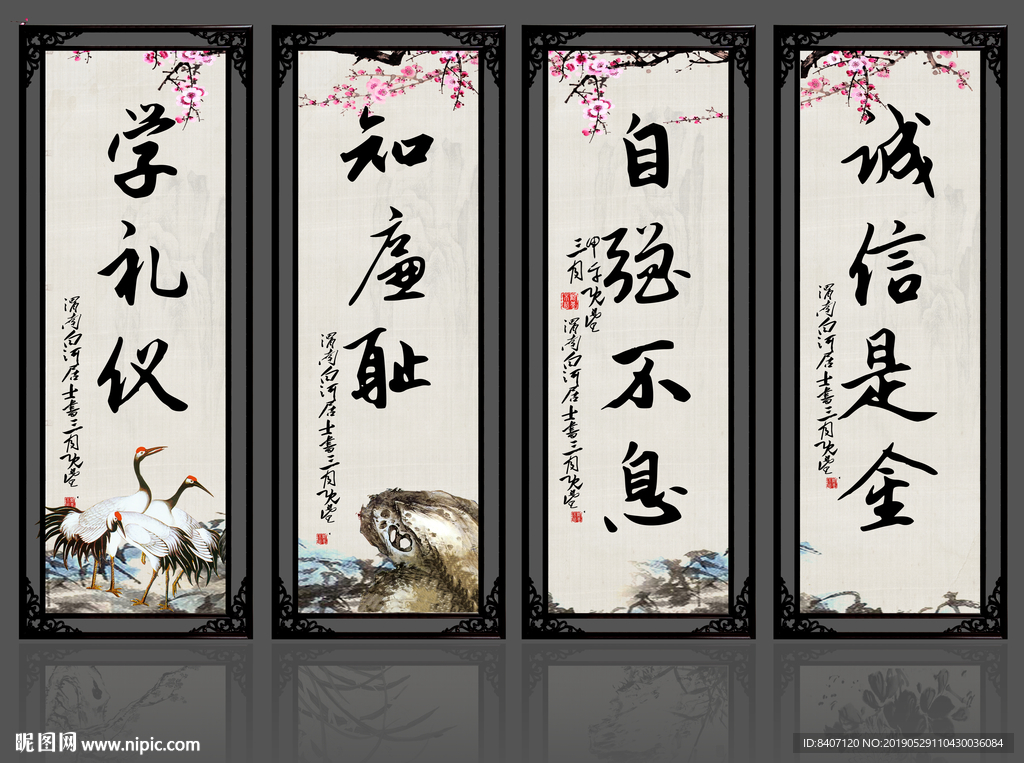 学礼仪
渭南白河居士书三月
知廉耻
渭南白河居士书三月
自强不息
甲午
三月
渭南白河居士书三月
诚信是金
渭南白河居士书三月
昵图网 www.nipic.com
ID:8407120 NO:20190529110430036084